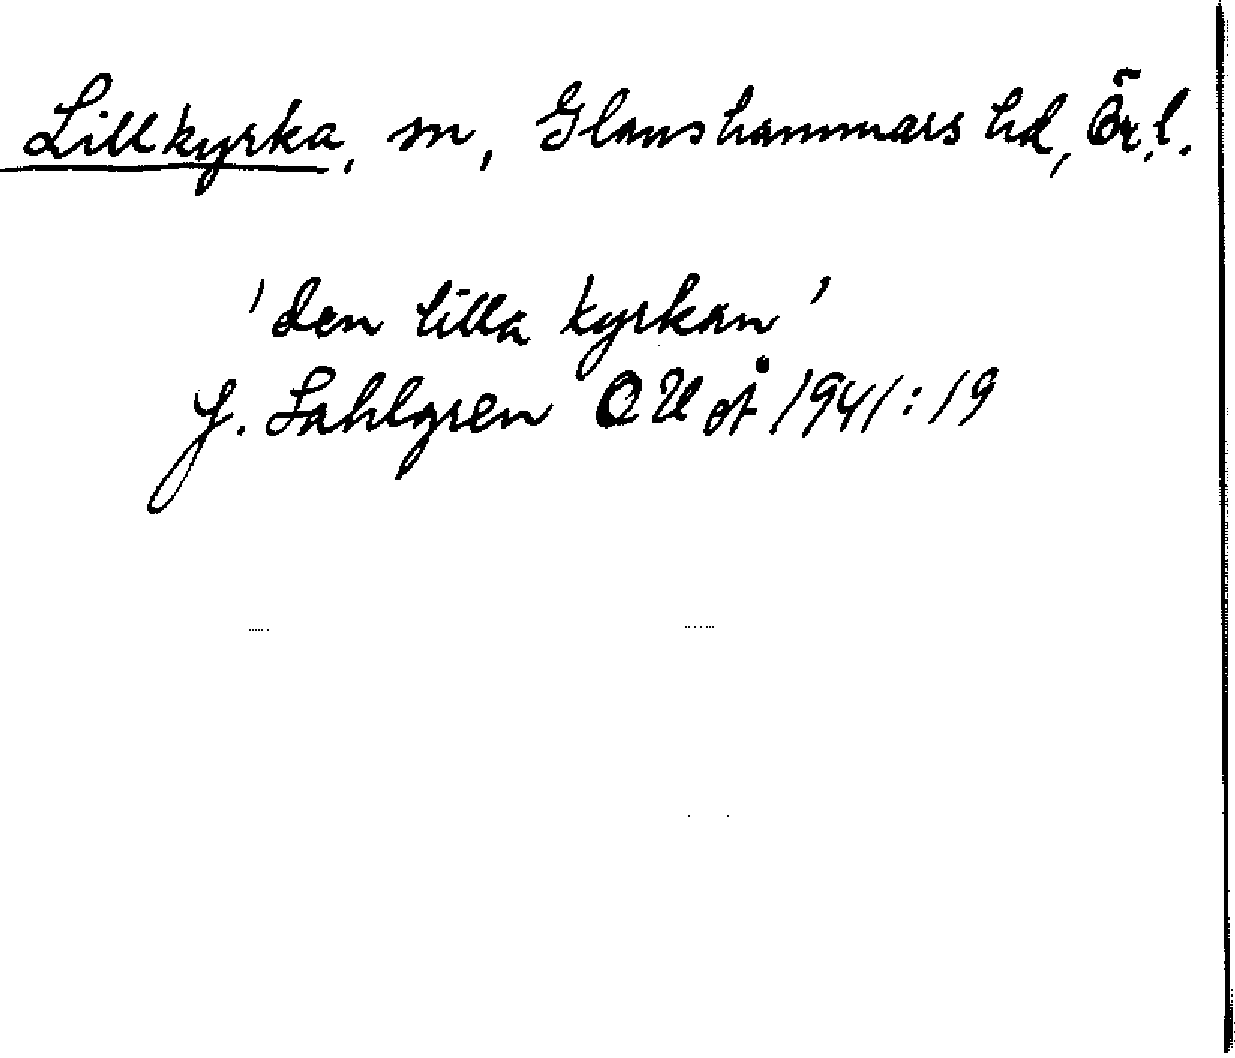 Lillkyrka, sn, Glanshammars hd, Ör. l.
'den lilla kyrkan'
J. Sahlgren OUoÅ 1941:19